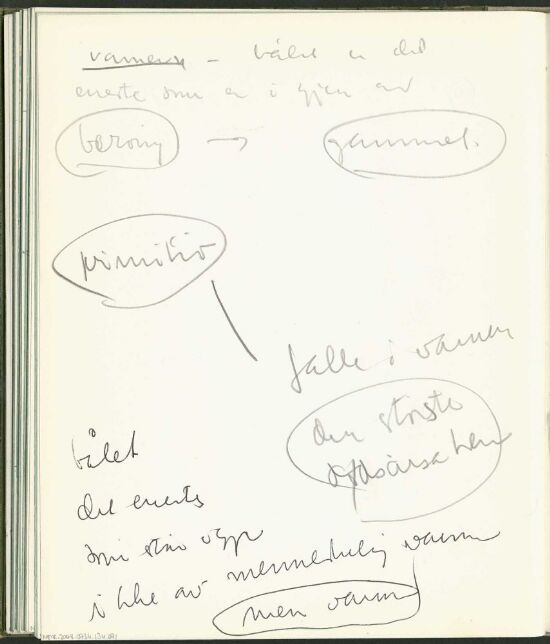 varmen – bålet er det
eneste som er igjen av
berøring → gammel.
primitiv
falle i varmen
den største
dødsårsaken
bålet
det eneste
som står
ikke av menneskelig varme
men varme